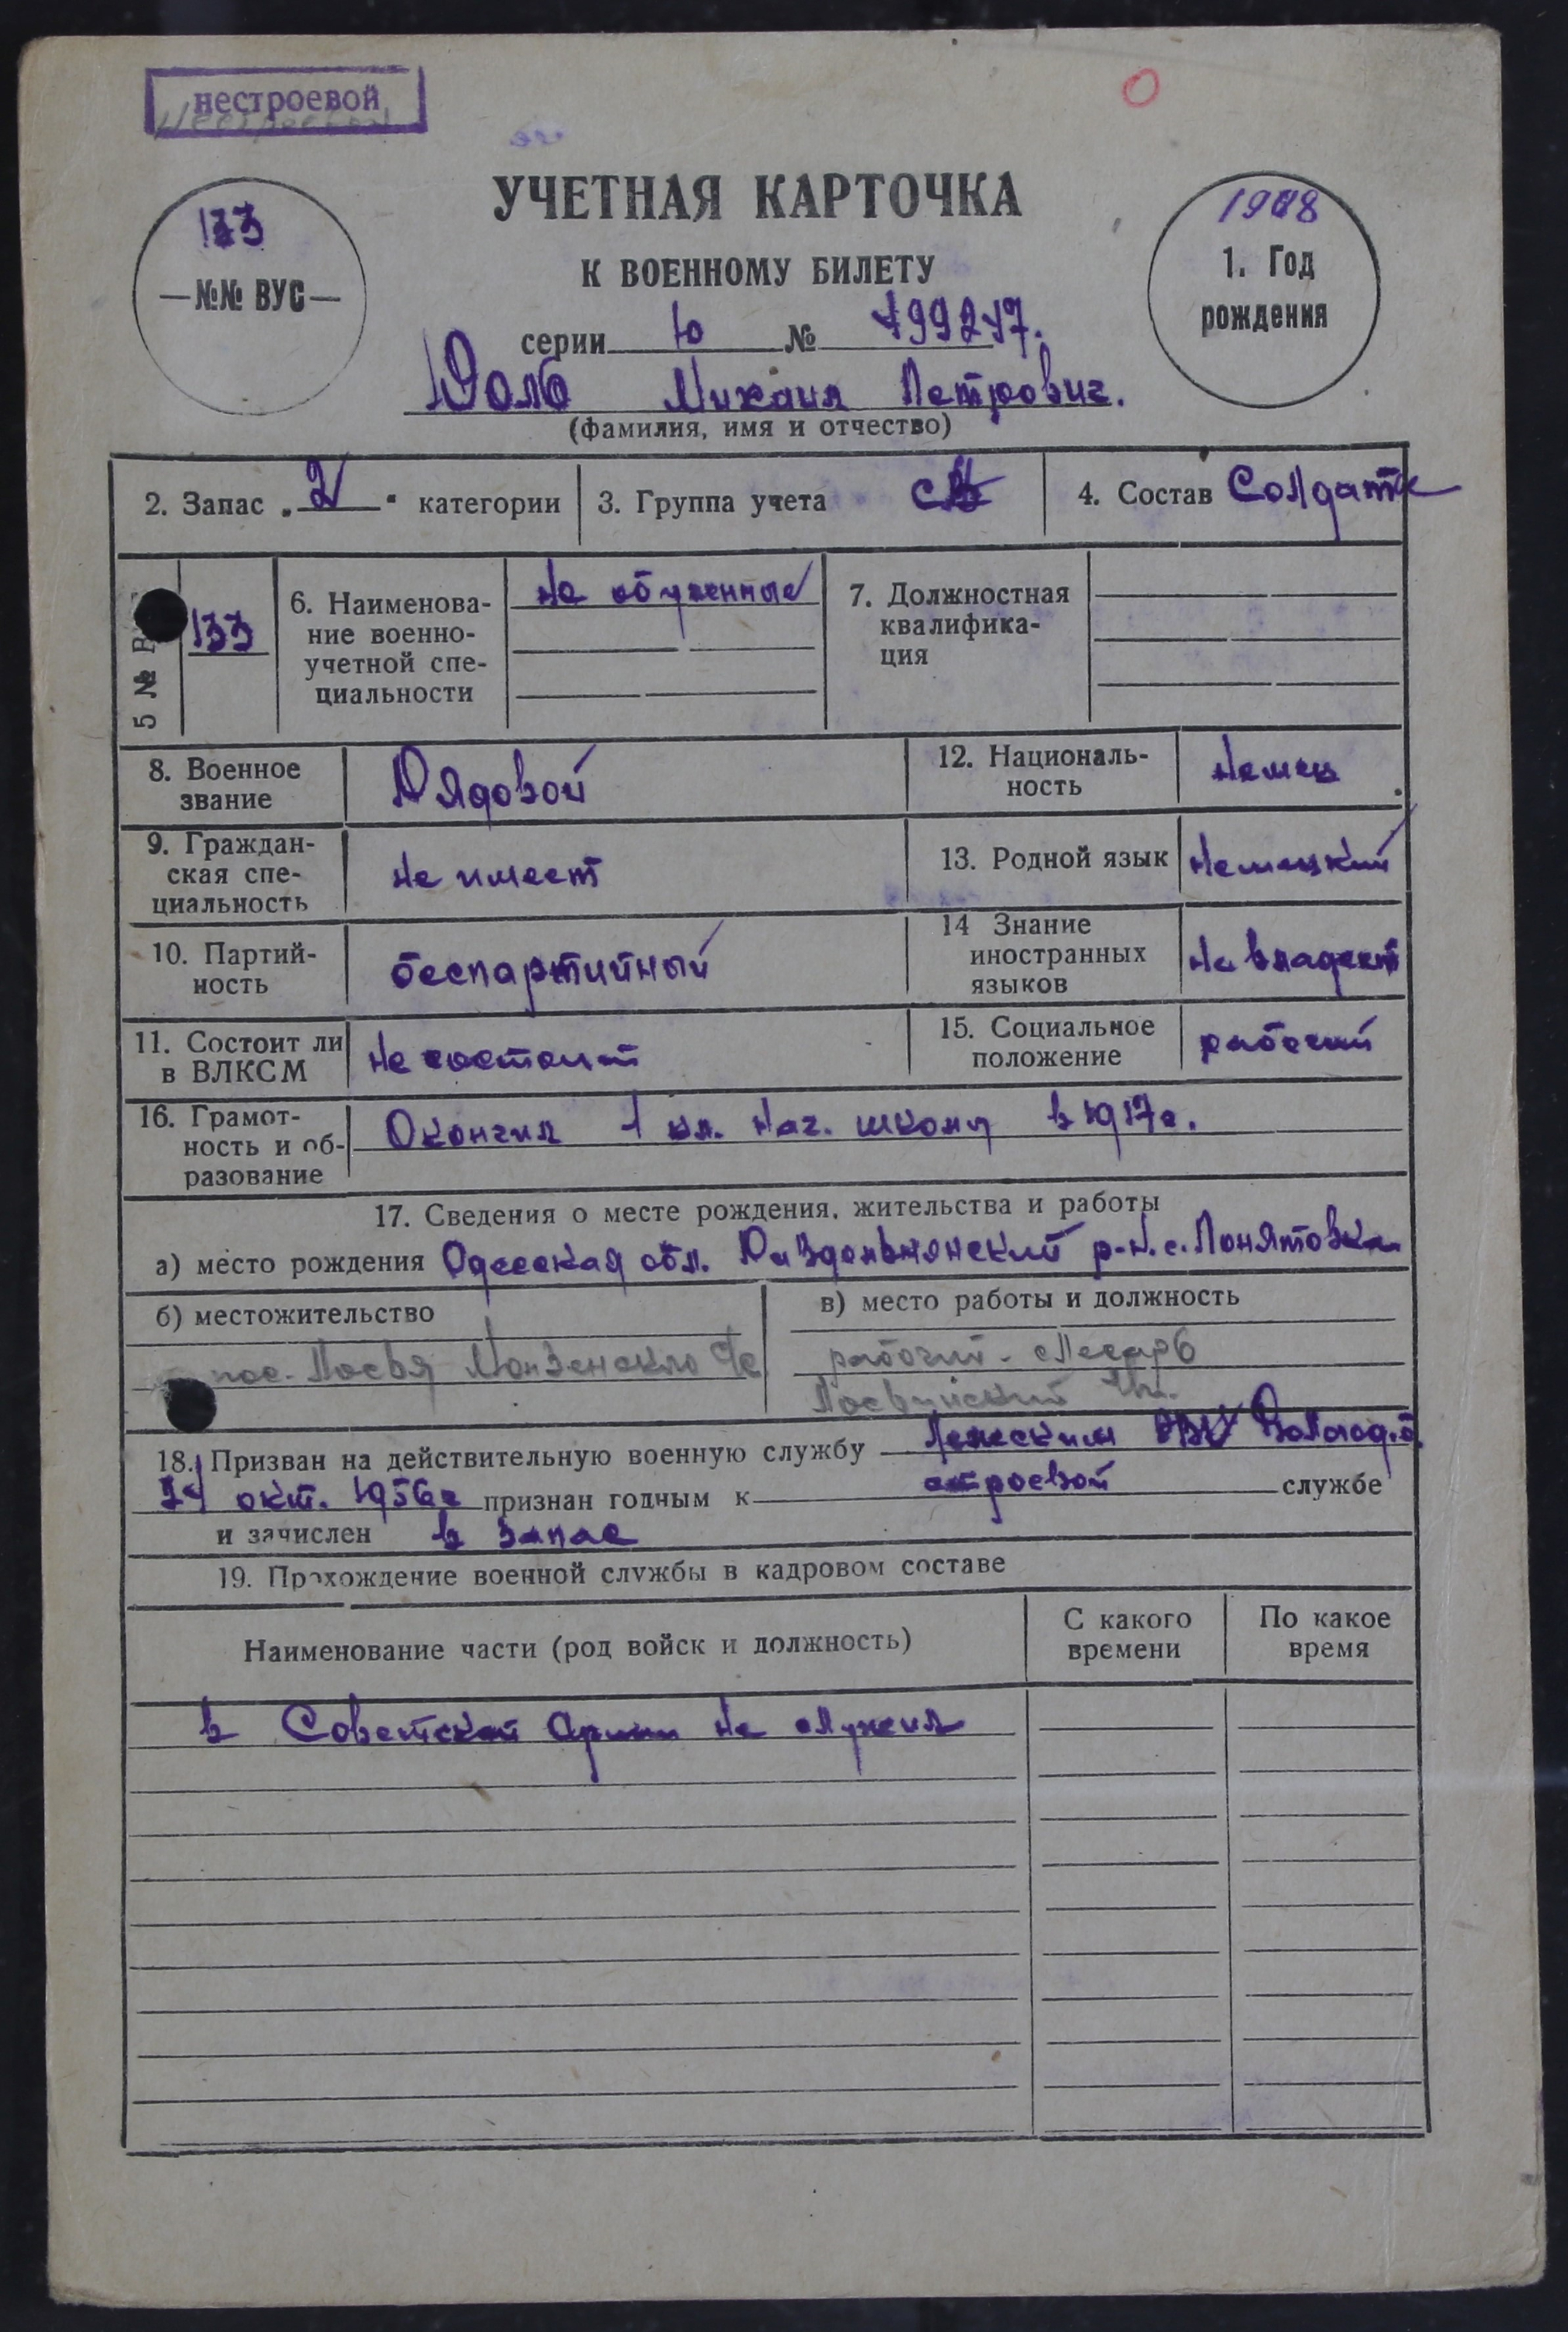 нестроевой
УЧЕТНАЯ КАРТОЧКА
К ВОЕННОМУ БИЛЕТУ
133
—№№ ВУС—
1908
1. Год
рождения
серии Ю №
Михаил Петрович.
(фамилия, имя и отчество)
2. Запас „2" категории
3. Группа учета
4. Состав Солдаты
5 № 133
6. Наименова-
ние военно-
учетной спе-
циальности
Не обученные
7. Должностная
квалифика-
ция
8. Военное
звание
Рядовой
12. Националь-
ность
Немец
9. Граждан-
ская спе-
циальность
Не имеет
13. Родной язык
Немецкий
10. Партий-
ность
беспартийный
14 Знание
иностранных
языков
Не владеет
11. Состоит ли
в ВЛКСМ
Не состоит
15. Социальное
положение
рабочий
16. Грамот-
ность и об-
разование
Окончил 1 кл. нач. школы в 1917г.
17. Сведения о месте рождения, жительства и работы
а) место рождения Одесская обл. р-н. с. Понятовка
б) местожительство
пос.
в) место работы и должность
рабочий - слесарь
18. Призван на действительную военную службу РВК Вологод. о.
окт. 1956г признан годным к строевой службе
и зачислен в запас
19. Прохождение военной службы в кадровом составе
Наименование части (род войск и должность)
С какого
времени
По какое
время
в Советской Армии не служил